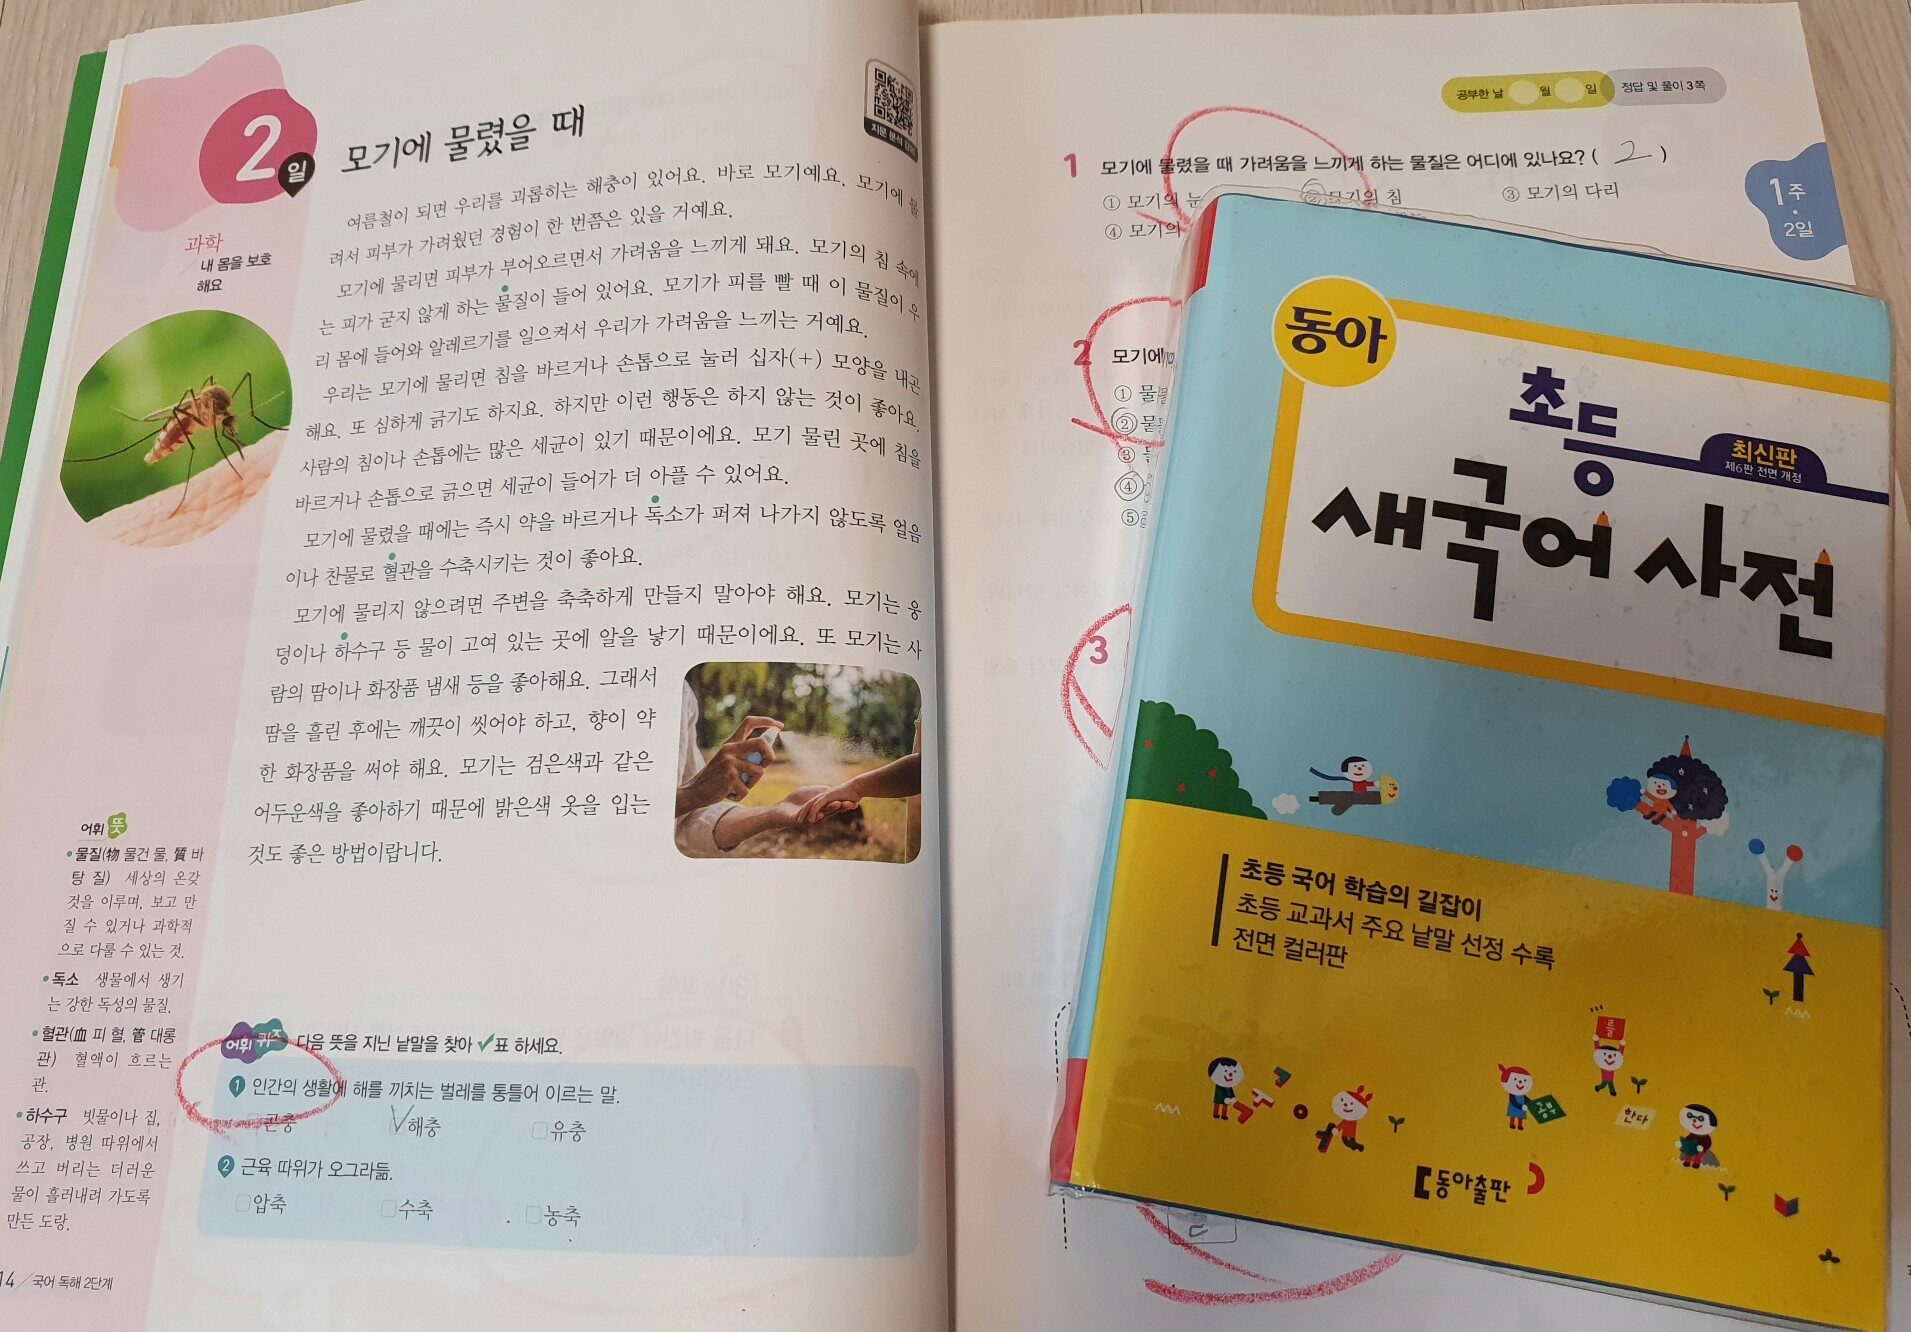 2일
모기에 물렸을 때
지문 분석 강의
과학
내 몸을 보호
해요
여름철이 되면 우리를 괴롭히는 해충이 있어요. 바로 모기예요. 모기에 물
려서 피부가 가려웠던 경험이 한 번쯤은 있을 거예요.
모기에 물리면 피부가 부어오르면서 가려움을 느끼게 돼요. 모기의 침 속에
는 피가 굳지 않게 하는 물질이 들어 있어요. 모기가 피를 빨 때 이 물질이 우
리 몸에 들어와 알레르기를 일으켜서 우리가 가려움을 느끼는 거예요.
우리는 모기에 물리면 침을 바르거나 손톱으로 눌러 십자(+) 모양을 내곤
해요. 또 심하게 긁기도 하지요. 하지만 이런 행동은 하지 않는 것이 좋아요.
사람의 침이나 손톱에는 많은 세균이 있기 때문이에요. 모기 물린 곳에 침을
바르거나 손톱으로 긁으면 세균이 들어가 더 아플 수 있어요.
모기에 물렸을 때에는 즉시 약을 바르거나 독소가 퍼져 나가지 않도록 얼음
이나 찬물로 혈관을 수축시키는 것이 좋아요.
모기에 물리지 않으려면 주변을 축축하게 만들지 말아야 해요. 모기는 웅
덩이나 하수구 등 물이 고여 있는 곳에 알을 낳기 때문이에요. 또 모기는 사
람의 땀이나 화장품 냄새 등을 좋아해요. 그래서
땀을 흘린 후에는 깨끗이 씻어야 하고, 향이 약
한 화장품을 써야 해요. 모기는 검은색과 같은
어두운색을 좋아하기 때문에 밝은색 옷을 입는
것도 좋은 방법이랍니다.
어휘 뜻
•물질(物 물건 물, 質 바
탕 질) 세상의 온갖
것을 이루며, 보고 만
질 수 있거나 과학적
으로 다룰 수 있는 것.
•독소 생물에서 생기
는 강한 독성의 물질.
•혈관(血 피 혈, 管 대롱
관) 혈액이 흐르는
관.
•하수구 빗물이나 집,
공장, 병원 따위에서
쓰고 버리는 더러운
물이 흘러내려 가도록
만든 도랑.
어휘 퀴즈 다음 뜻을 지닌 낱말을 찾아 ✓표 하세요.
1 인간의 생활에 해를 끼치는 벌레를 통틀어 이르는 말.
□곤충 ☑해충 □유충
2 근육 따위가 오그라듦.
□압축 □수축 □농축
14 / 국어 독해 2단계
공부한 날 월 일 정답 및 풀이 3쪽
1주
2일
1 모기에 물렸을 때 가려움을 느끼게 하는 물질은 어디에 있나요? ( 2 )
① 모기의 눈 ② 모기의 침 ③ 모기의 다리
④ 모기의
2 모기에
① 물
② 물
③
④
⑤
3
동아
초등
최신판
제6판 전면 개정
새국어 사전
초등 국어 학습의 길잡이
초등 교과서 주요 낱말 선정 수록
전면 컬러판
를
공부
한다
동아출판